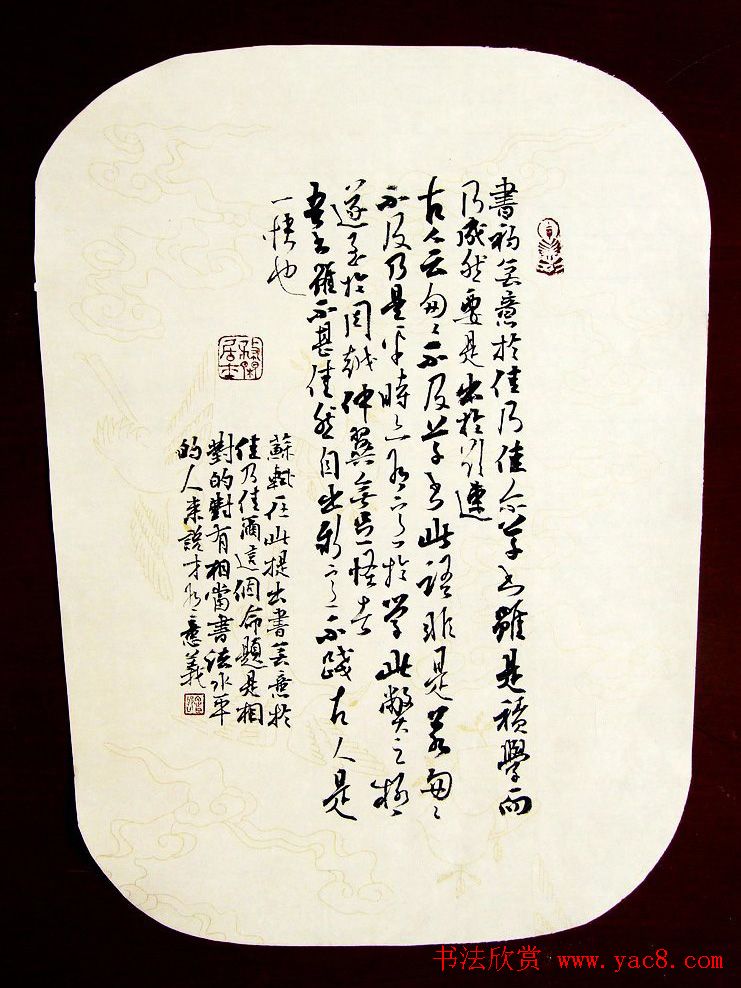 書初無意於佳乃佳尒草書雖是積學而
乃成然要是出於欲速
古人云匆〻不及草書此語非是若匆〻
不及乃是平時亦有意於學此弊之極
遂至於周越仲翼無足怪者
吾書雖不甚佳然自出新意不踐古人是
一快也
居士
蘇軾在此提出書無意於
佳乃佳酒這個命題是相
對的對有相當書法水平
的人來說才有意義
书法欣赏 www.yac8.com